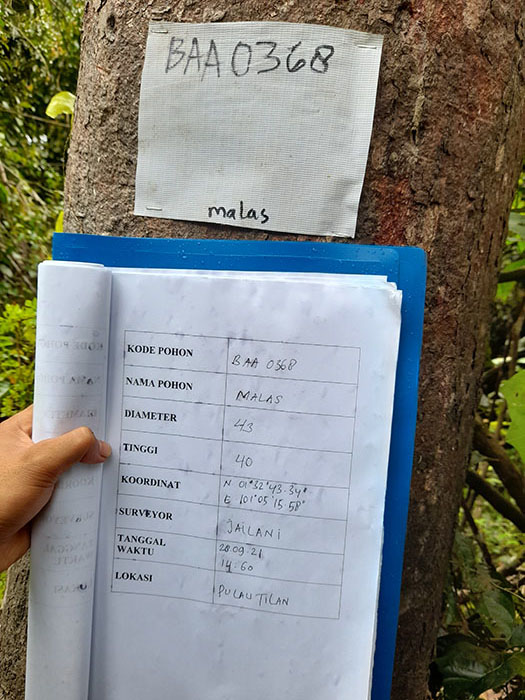 BAA 0368
malas
KODE POHON BAA 0368
NAMA POHON MALAS
DIAMETER 43
TINGGI 40
KOORDINAT N 01°32'43.34"
E 101°05'15.58"
SURVEYOR JAILANI
TANGGAL 20.09.21
WAKTU 14:60
LOKASI PULAU TILAN